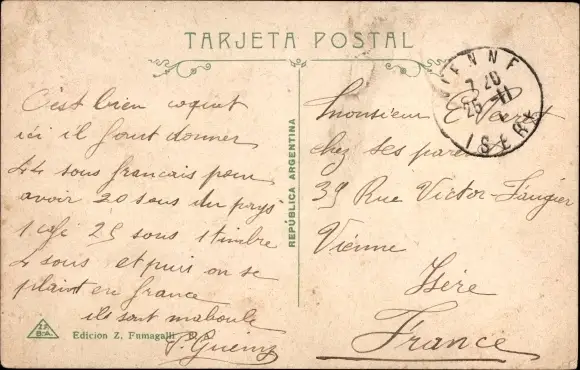 TARJETA POSTAL
REPÚBLICA ARGENTINA
VIENNE
7 20
25 - 11
ISERE
C'est bien coquet
ici il faut donner
44 sous francais pour
avoir 20 sous du pays
1 café 25 sous 1 timbre
4 sous et puis on se
plaint en france
ils sont maboule
Monsieur
chez ses parents
39 Rue Victor-Faugier
Vienne
Isère
France
Edicion Z. Fumagalli B.